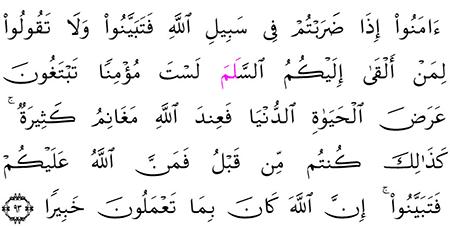 ءَامَنُوا۟ إِذَا ضَرَبْتُمْ فِى سَبِيلِ ٱللَّهِ فَتَبَيَّنُوا۟ وَلَا تَقُولُوا۟
لِمَنْ أَلْقَىٰٓ إِلَيْكُمُ ٱلسَّلَمَ لَسْتَ مُؤْمِنًا تَبْتَغُونَ
عَرَضَ ٱلْحَيَوٰةِ ٱلدُّنْيَا فَعِندَ ٱللَّهِ مَغَانِمُ كَثِيرَةٌ ۚ
كَذَٰلِكَ كُنتُم مِّن قَبْلُ فَمَنَّ ٱللَّهُ عَلَيْكُمْ
فَتَبَيَّنُوٓا۟ ۚ إِنَّ ٱللَّهَ كَانَ بِمَا تَعْمَلُونَ خَبِيرًا ٩٣